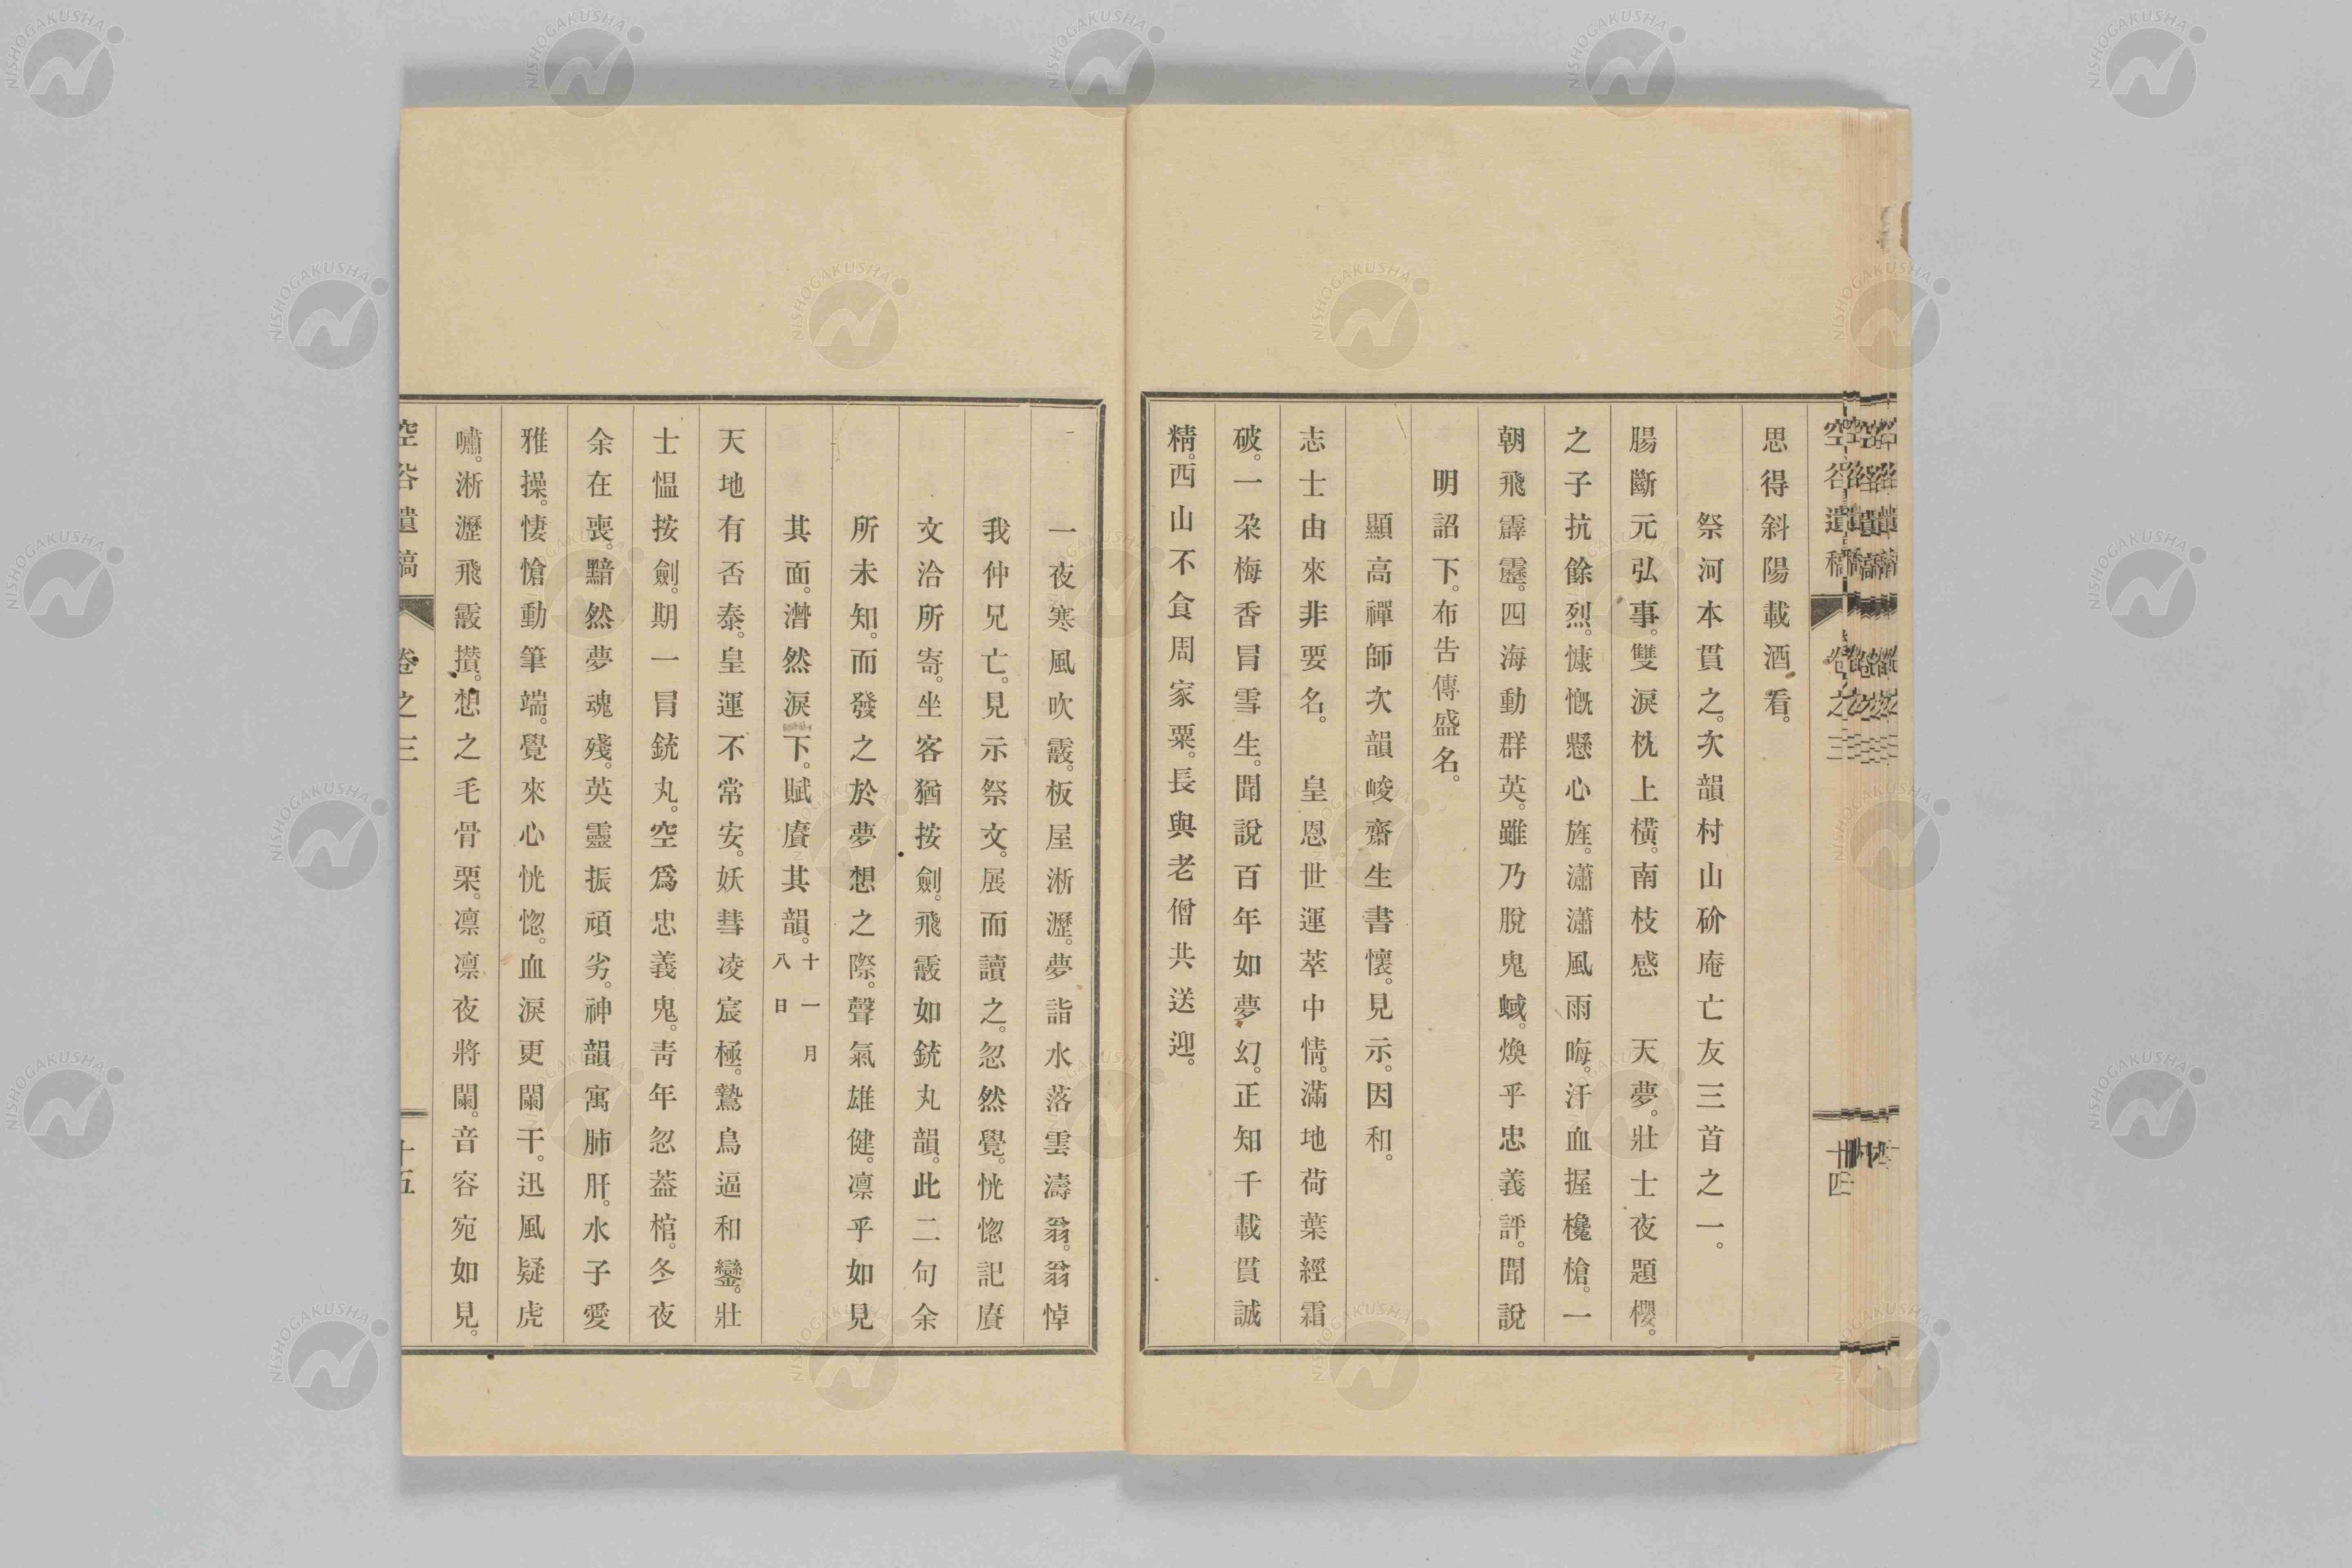 空谷遺稿 卷之三 十四
思得斜陽載酒看。
祭河本貫之。次韻村山砎庵亡友三首之一。
腸斷元弘事。雙淚枕上橫。南枝感　天夢。壯士夜題櫻。
之子抗餘烈。慷慨懸心旌。瀟瀟風雨晦。汗血握欃槍。一
朝飛霹靂。四海動群英。雖乃脫鬼蜮。煥乎忠義評。聞說
明詔下。布告傳盛名。
顯高禪師次韻峻齋生書懷。見示。因和。
志士由來非要名。　皇恩世運萃中情。滿地荷葉經霜
破。一朶梅香冒雪生。聞說百年如夢幻。正知千載貫誠
精。西山不食周家粟。長與老僧共送迎。
一夜寒風吹霰。板屋淅瀝。夢詣水落雲濤翁。翁悼
我仲兄亡。見示祭文。展而讀之。忽然覺。恍惚記賡
文洽所寄。坐客猶按劍。飛霰如銃丸韻。此二句余
所未知。而發之於夢想之際。聲氣雄健。凛乎如見
其面。潸然淚下。賦賡其韻。十一月八日
天地有否泰。皇運不常安。妖彗凌宸極。鷙鳥逼和鑾。壯
士慍按劍。期一冒銃丸。空爲忠義鬼。靑年忽蓋棺。冬夜
余在喪。黯然夢魂殘。英靈振頑劣。神韻寓肺肝。水子愛
雅操。悽愴動筆端。覺來心恍惚。血淚更闌干。迅風疑虎
嘯。淅瀝飛霰攅。想之毛骨栗。凛凛夜將闌。音容宛如見。
空谷遺稿 卷之三 十五